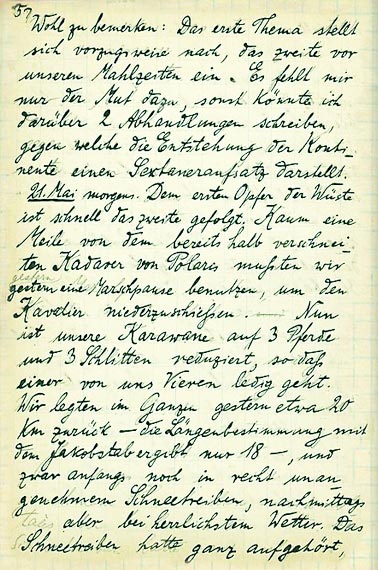 57
Wohl zu bemerken: Das erste Thema stellt
sich vorzugsweise nach, das zweite vor
unseren Mahlzeiten ein. Es fehlt mir
nur der Mut dazu, sonst könnte ich
darüber 2 Abhandlungen schreiben,
gegen welche die Entstehung der Konti-
nente einen Sextaneraufsatz darstellt.
21. Mai morgens. Dem ersten Opfer der Wüste
ist schnell das zweite gefolgt. Kaum eine
Meile von dem bereits halb verschnei-
ten Kadaver von Polaris mußten wir
gestern eine Marschpause benutzen, um den
Kavalier niederzuschießen. — Nun
ist unsere Karawane auf 3 Pferde
und 3 Schlitten reduziert, so daß
einer von uns Vieren ledig geht.
Wir legten im Ganzen gestern etwa 20
km zurück — die Längenbestimmung mit
dem Jakobstab ergibt nur 18 —, und
zwar anfangs noch in recht unan-
genehmem Schneetreiben, nachmittags
aber bei herrlichstem Wetter. Das
Schneetreiben hatte ganz aufgehört,